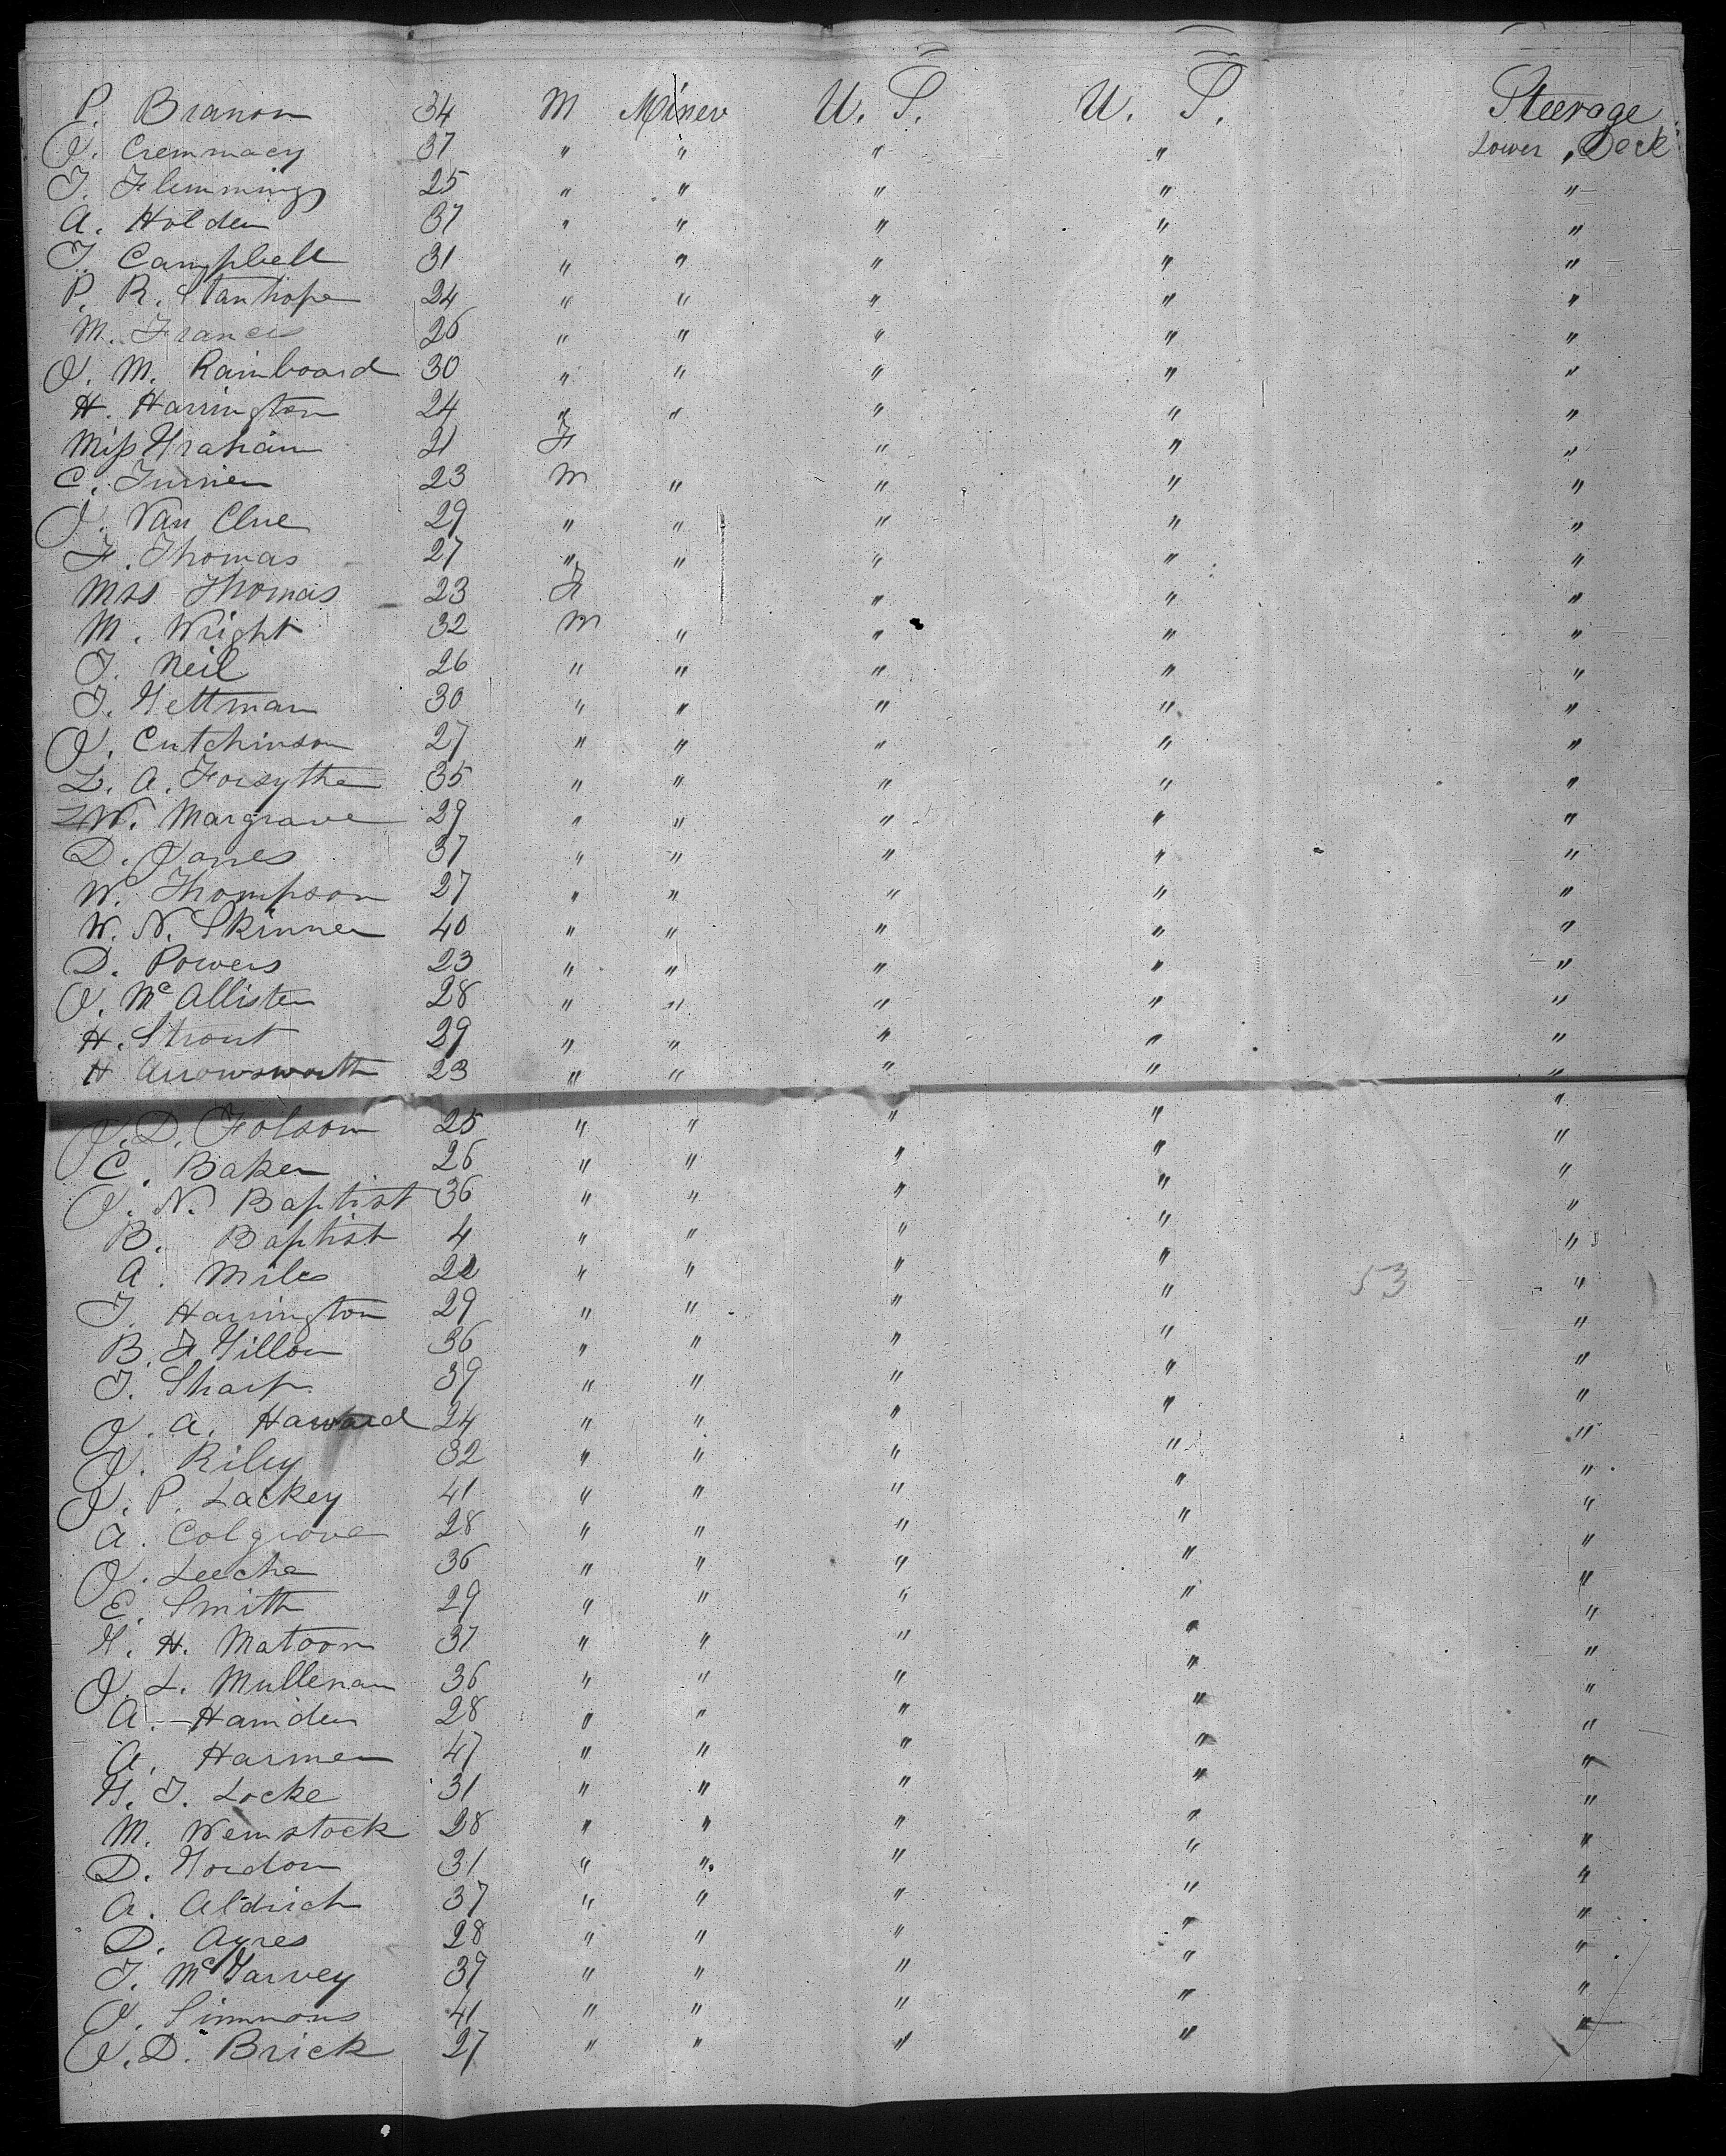 P. Branon 34 M Miner U. S. U. S. Steerage
J. Cremmacy 37 " " " " Lower Deck
T. Flemmings 25 " " " " "
A. Holden 37 " " " " "
T. Campbell 31 " " " " "
P. R. Stanhope 24 " " " " "
M. Francis 26 " " " " "
J. M. Rainboard 30 " " " " "
H. Harrington 24 " " " " "
Miss Graham 21 F " " "
C. Turner 23 M " " " "
J. Van Clue 29 " " " " "
F. Thomas 27 " " " " "
Mrs Thomas 23 F " " "
M. Wright 32 M " " " "
T. Neil 26 " " " " "
T. Gettman 30 " " " " "
J. Cutchinson 27 " " " " "
L. A. Forsythe 35 " " " " "
W. Margrave 29 " " " " "
D. Jones 37 " " " " "
W. Thompson 27 " " " " "
W. N. Skinner 40 " " " " "
D. Powers 23 " " " " "
J. McAllister 28 " " " " "
H. Strout 29 " " " " "
H Arrowsworth 23 " " " " "
J. D. Folsom 25 " " " " "
C. Baker 26 " " " " "
J. N. Baptist 36 " " " " "
B. Baptist 4 " " " " "
A. Miles 22 " " " " "
T. Harrington 29 " " " " 53 "
B. F. Gillon 36 " " " " "
T. Sharp 39 " " " " "
J. A. Haward 24 " " " " "
J. Riley 32 " " " " "
J. P. Lackey 41 " " " " "
A. Colgrove 28 " " " " "
J. Leeche 36 " " " " "
E. Smith 29 " " " " "
G. H. Matoon 37 " " " " "
J. L. Mullenan 36 " " " " "
A. Hamden 28 " " " " "
A. Harmen 47 " " " " "
G. T. Locke 31 " " " " "
M. Wemstock 28 " " " " "
D. Gordon 31 " " " " "
A. Aldrich 37 " " " " "
D. Ayres 28 " " " " "
T. McGarvey 39 " " " " "
J. Simmons 41 " " " " "
J. D. Brick 27 " " " "